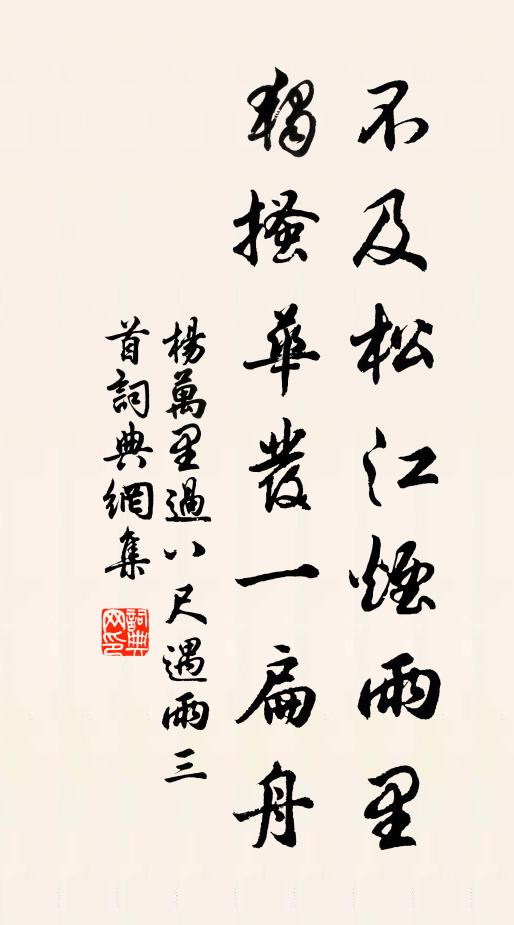 不及松江煙雨里
獨搔華發一扁舟
楊萬里過八尺遇雨三
首詞典網集
詞典網印